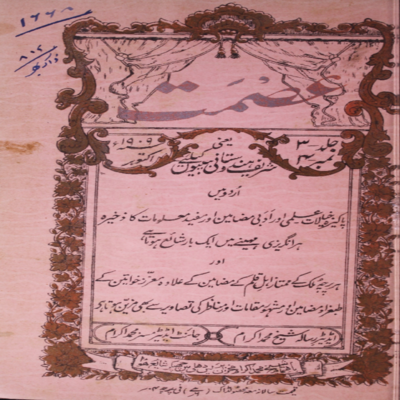 ۱۶۶۸
۸۰۲
عصمت
جلد ۳
نمبر ۴
یعنی
شریف ہندوستانی بیبیوں کیلئے
۱۹۰۹ء
اکتوبر
اردو میں
پاکیزہ خیالات علمی اور ادبی مضامین اور مفید معلومات کا ذخیرہ
ہر انگریزی مہینے میں ایک بار شائع ہوتا ہے
اور
ہر پرچہ ملک کے ممتاز اہل قلم کے مضامین کے علاوہ معزز خواتین کے
مضامین اور مشہور مقامات و مناظر کی تصاویر سے بھی مزین ہوتا ہے
ایڈیٹر رسالہ شیخ محمد اکرام
جائنٹ ایڈیٹر مسز محمد اکرام